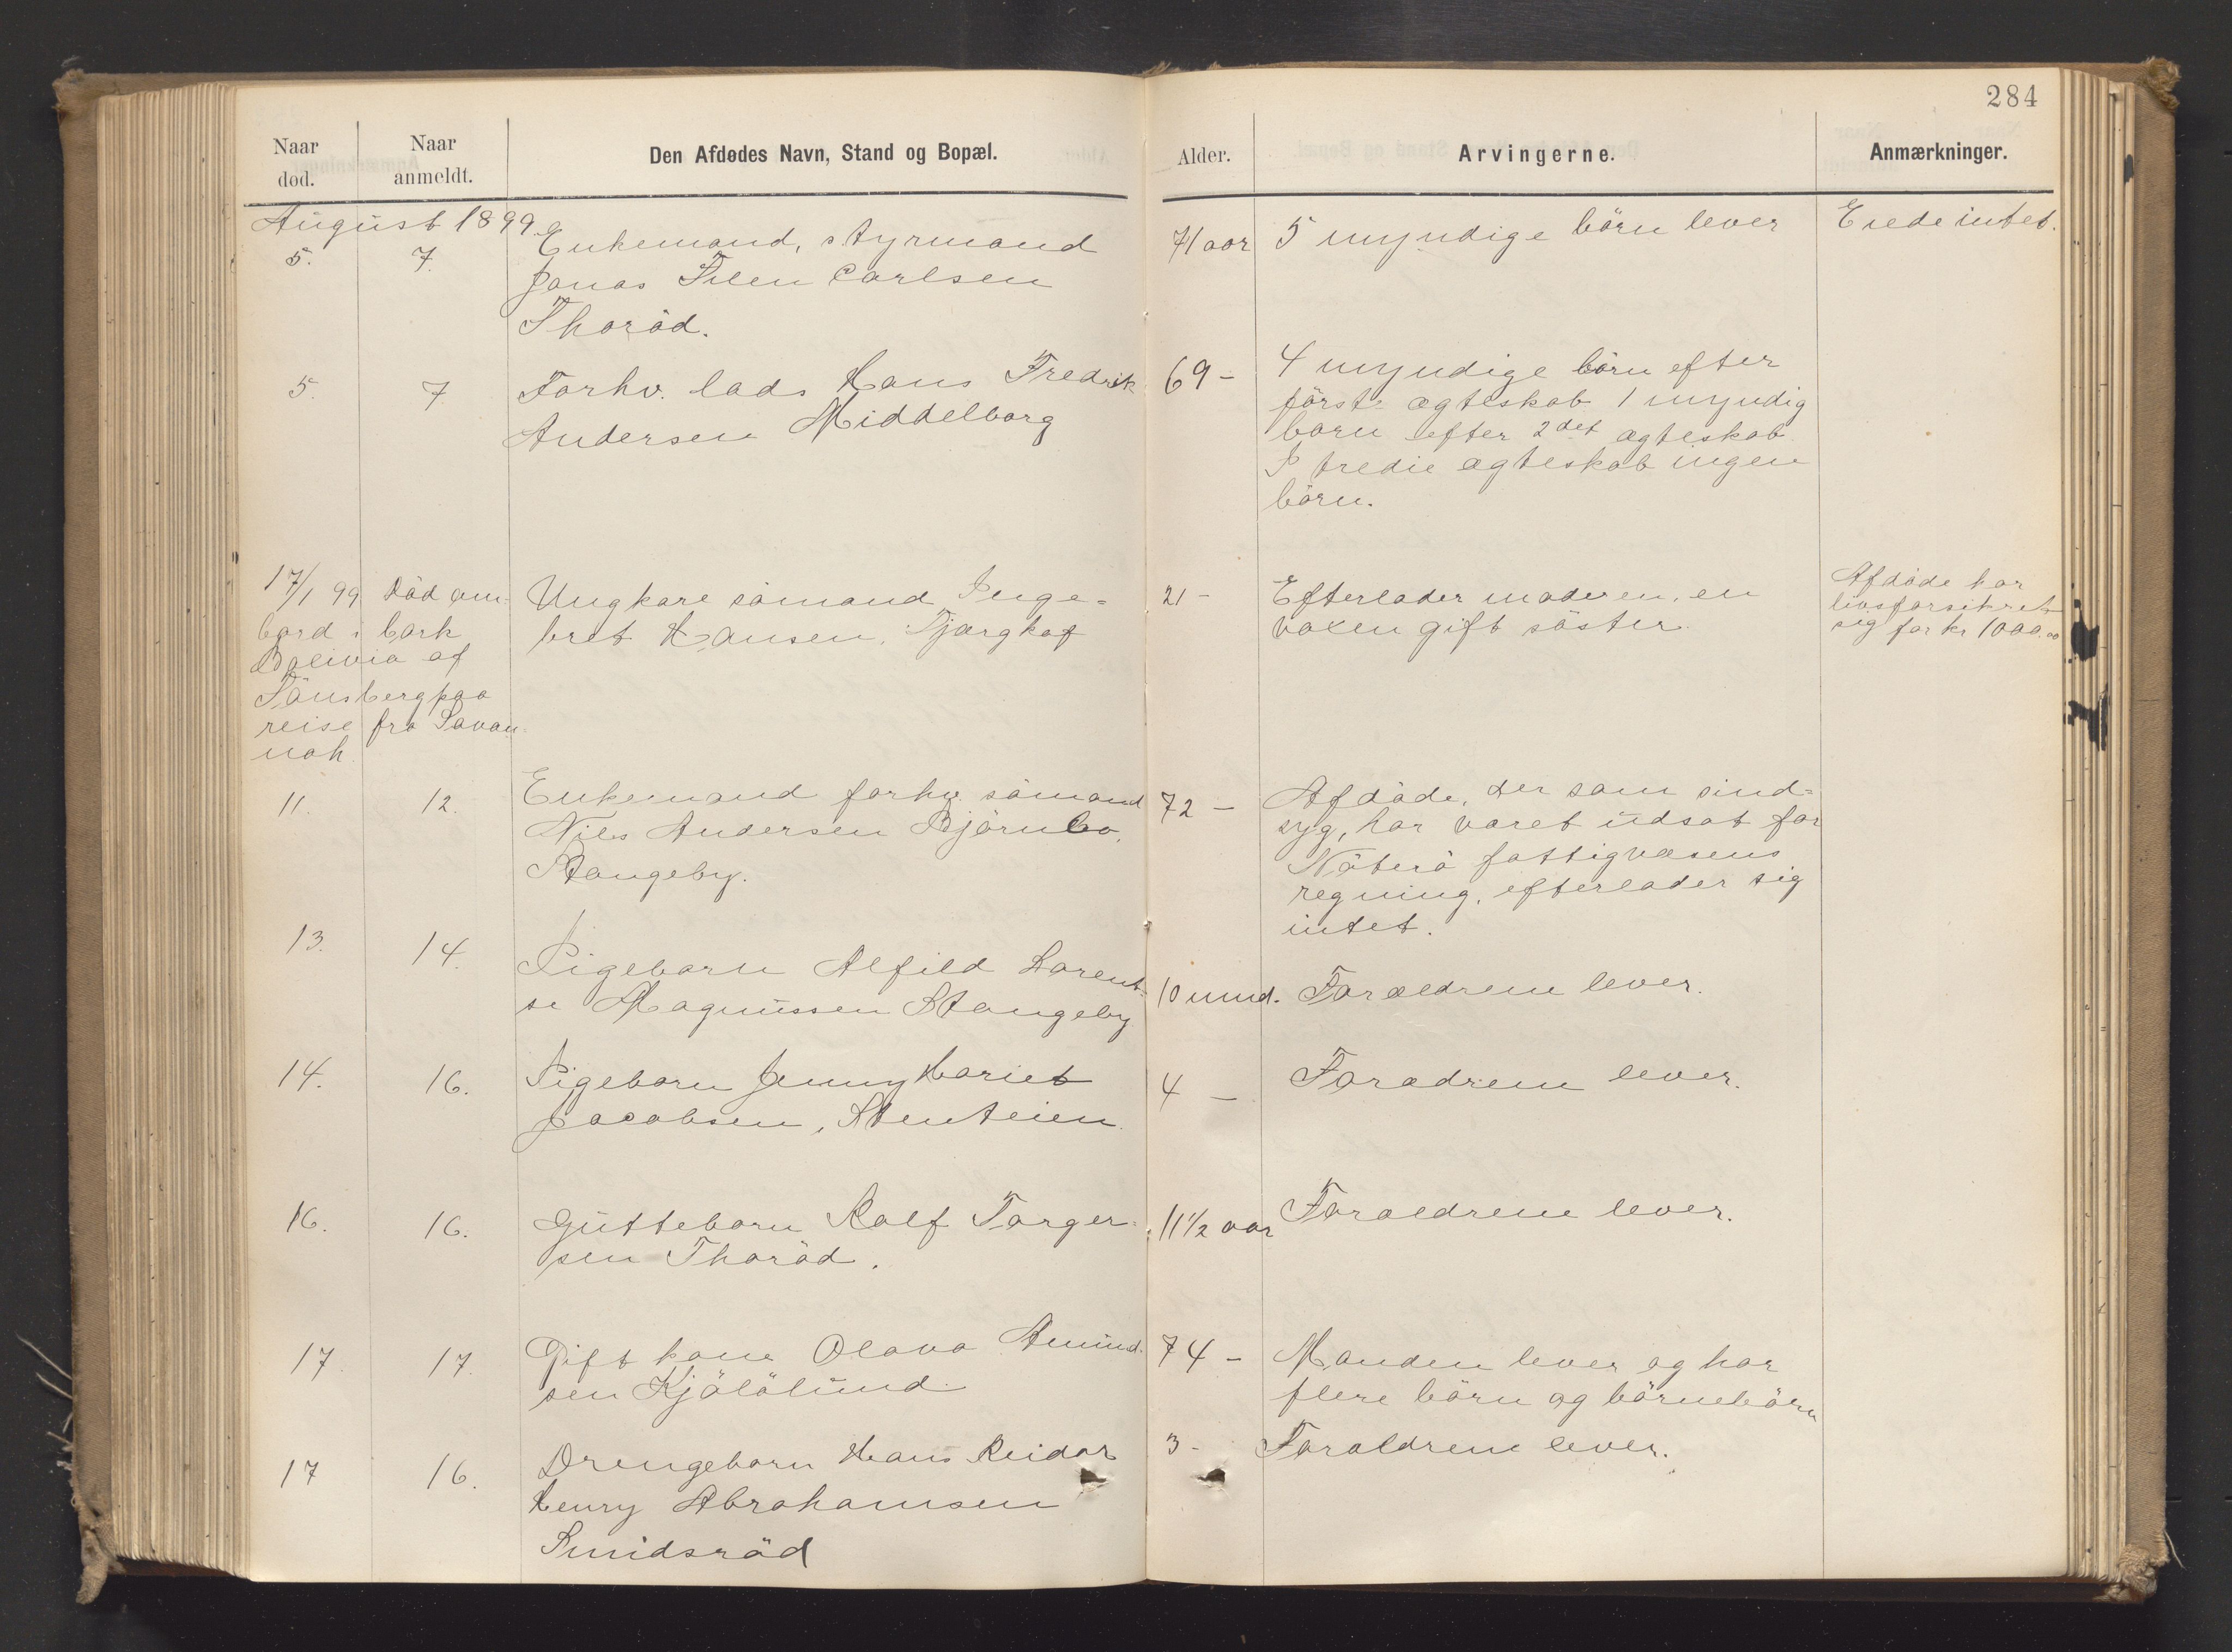 284
Naar død. Naar anmeldt. Den Afdødes Navn, Stand og Bopæl. Alder. Arvingerne. Anmærkninger.
August 1899.
5. 7. Enkemand, styrmand 71 aar 5 myndige börn lever Eiede intet.
Jonas Filen Carlsen
Thoröd.
5. 7. Forhv. lods Hans Fredrik 69 - 4 myndige börn efter
Andersen Middelborg
förste ægteskab 1 myndig
barn efter 2det ægteskab.
I tredie ægteskab ingen
börn.
17/1 99 Död om- Ungkare sömand Inge- 21 - Efterlader moderen, en Afdöde har
bord i bark bret Hansen, voxen gift söster. livsforsikret
Bolivia af sig for kr 1000.00
Tönsberg paa
reise fra Savan-
nah
11. 12. Enkemand forhv. sömand 72 - Afdöde, der som sind-
Niels Andersen Björnebo, syg, har været udsat for
Stangeby. Nöterö fattigvæsens
regning, efterlader sig
intet.
13. 14. Pigebarn Alfild Lorent- 10 mnd. Forældrene lever.
se Magnussen Stangeby
14. 16. Pigebarn Jenny Hariet 4 - Forædrene lever.
Jacobsen, Stenteien
16. 16. Guttebarn Rolf Torger- 11 1/2 aar Forældrene lever.
sen Thoröd.
17. 17. Gift kone Olava Amund- 74 - Manden lever og har
sen Kjölölund. flere börn og börnebörn
17 16. Drengebarn Hans Reidar 3 - Forældrene lever.
Henry Abrahamsen
Smidsröd